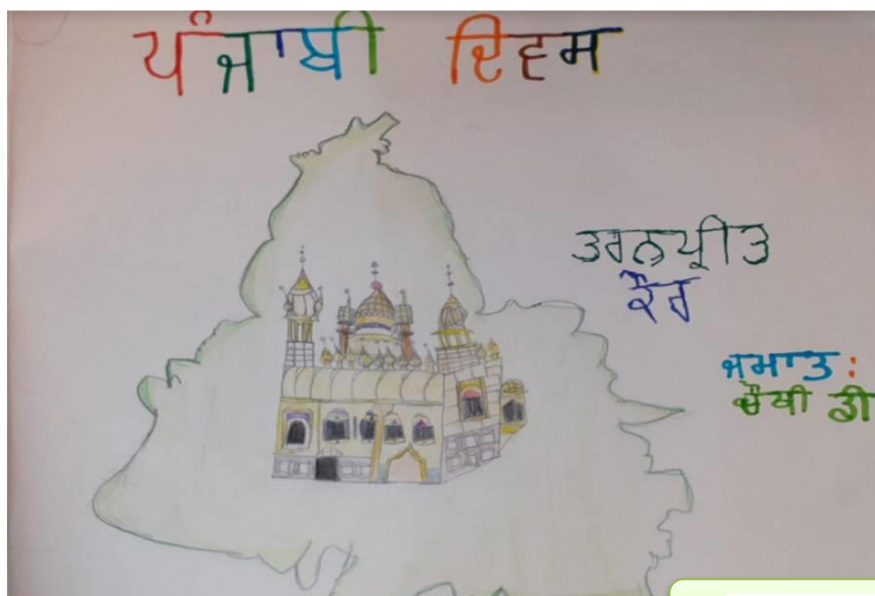 ਪੰਜਾਬੀ ਦਿਵਸ
ਤਰਨਪ੍ਰੀਤ
ਕੌਰ
ਜਮਾਤ :
ਚੌਥੀ ਡੀ